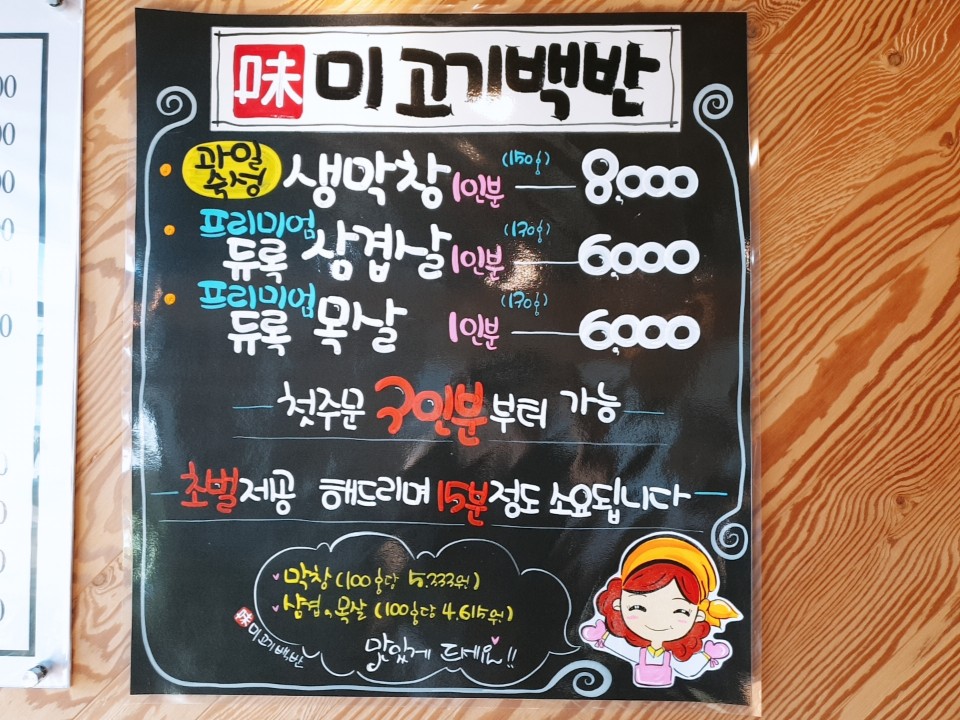 味 미 고기백반
과일숙성 생막창 1인분 (150g) 8,000
프리미엄 듀록 삼겹살 1인분 (130g) 6,000
프리미엄 듀록 목살 1인분 (130g) 6,000
첫주문 3인분부터 가능
초벌제공 해드리며 15분정도 소요됩니다
막창 (100g당 5,333원)
삼겹, 목살 (100g당 4,615원)
味 미고기백반
맛있게 드세요!!